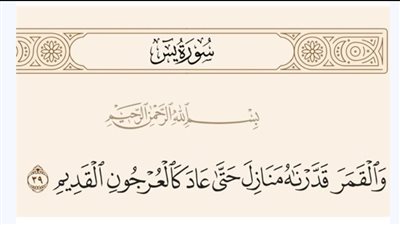 سُورَةُ يسٓ
بِسْمِ ٱللَّهِ ٱلرَّحْمَٰنِ ٱلرَّحِيمِ
وَٱلْقَمَرَ قَدَّرْنَٰهُ مَنَازِلَ حَتَّىٰ عَادَ كَٱلْعُرْجُونِ ٱلْقَدِيمِ ٣٩